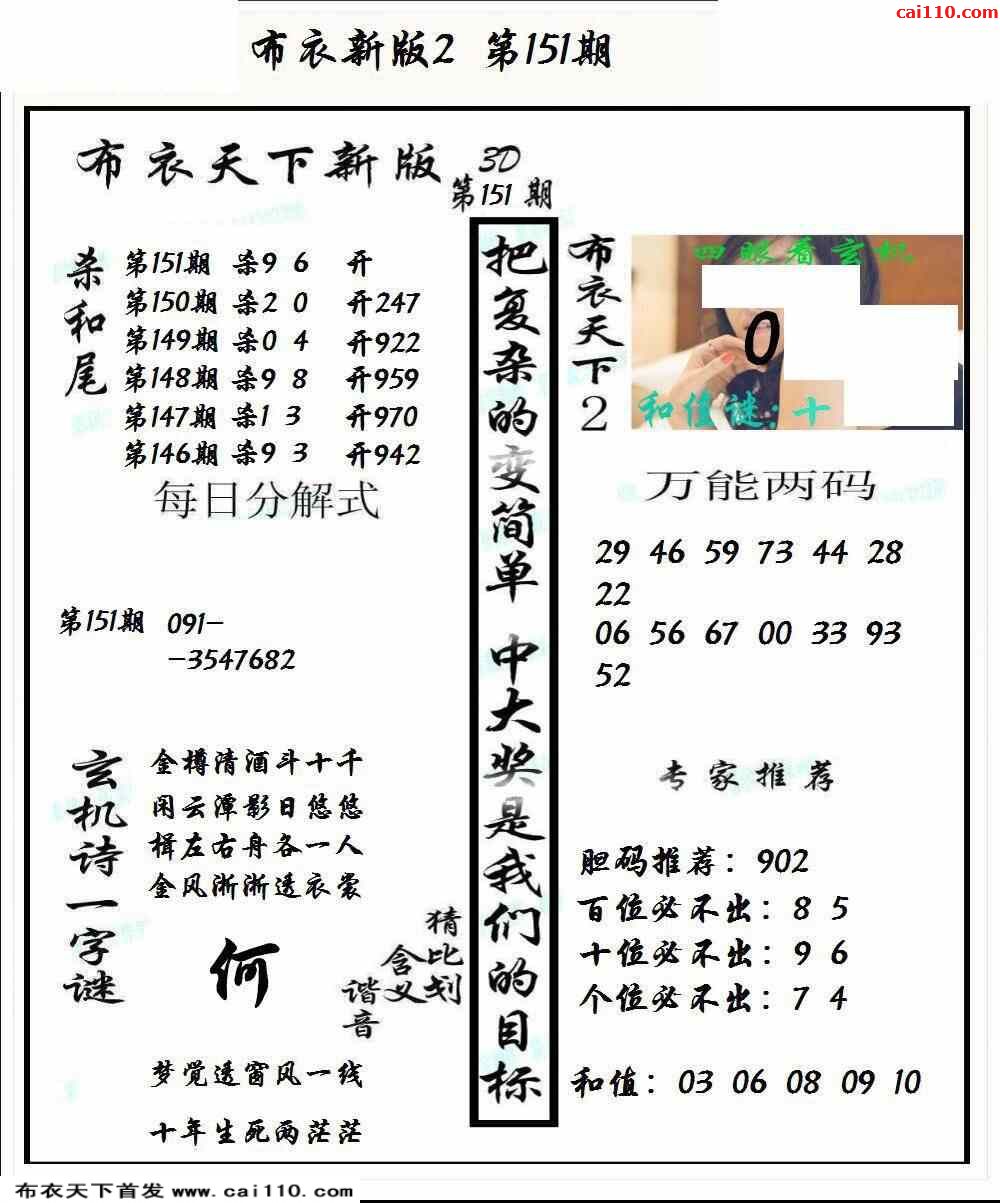 cai110.com
布衣新版2 第151期
布衣天下新版 3D
第151 期
杀和尾
第151期 杀9 6 开
第150期 杀2 0 开247
第149期 杀0 4 开922
第148期 杀9 8 开959
第147期 杀1 3 开970
第146期 杀9 3 开942
每日分解式
第151期 091-
-3547682
玄机诗一字谜
金樽清酒斗十千
闲云潭影日悠悠
楫左右舟各一人
金风淅淅透衣裳
何
猜比划
含义
谐音
梦觉透窗风一线
十年生死两茫茫
把复杂的变简单 中大奖是我们的目标
布衣天下2
四眼看玄机
0
和值谜:十
万能两码
29 46 59 73 44 28
22
06 56 67 00 33 93
52
专家推荐
胆码推荐：902
百位必不出：8 5
十位必不出：9 6
个位必不出：7 4
和值：03 06 08 09 10
布衣天下首发 www.cai110.com